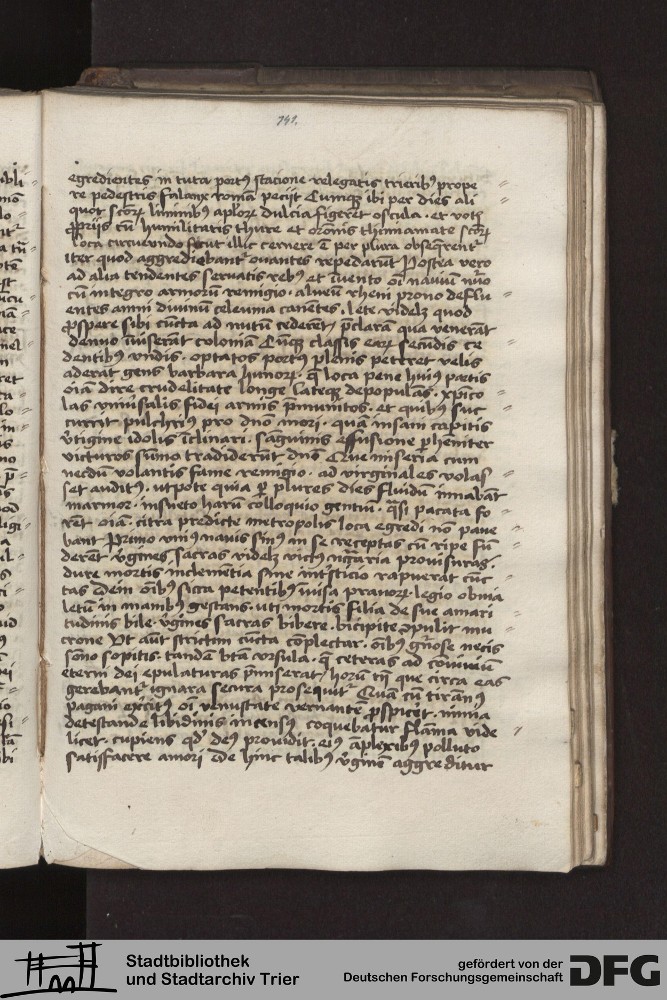 141.
egredientes in tuta portꝰ stacione relegatis trieribꝰ prope
re pedestris falanx romā peciit Cumqꝫ ibi per dies ali
quot scōꝝ liminibꝰ aplōꝝ dulcia figeret oscula · et voti
ꝓprijs cū humilitatis thure et orōnis thimiamate scōꝝ
loca circueundo sicut illic cernere ē per plura obseqrent᷑
iter quod aggrediebant᷑ ouantes repedarūt Postea vero
ad alia tendentes seruatis rebꝰ et inuento oī nauiū nūo
cū integro armorū remigio · alueū rheni prono deflu
entes amni diuinū celeuma canētes · lete videlꝫ quod
ꝓspere sibi cūcta ad nutū cederēt / p̄clarā qua venerāt
denuo iuiserāt coloniā Cūqꝫ classis eaꝝ secūdis ce
dentibꝰ vndis · optatos portꝰ plenis peteret velis
aderat gens barbara hunoꝝ · q̄ loca pene huiꝰ partis
oīa dire crudelitate longe lateqꝫ depopulās · xp̄ico
las vniuersalis fidei armis p̄munitos · et quibꝰ suc
currit pulchriꝰ pro dn̄o mori · quā insani capitis
v̄tigine idolis īclinari · sanguinis effusione pheniter
victuros sūmo tradiderūt dn̄o Que miseria cum
necdū volantis fame remigio · ad virginales volas
set auditꝰ · utpote quia ꝑ plures dies fluidū innabāt
marmor · insueto harū colloquio gentiū · q̄si pacata fo
rēt oīa · citra predicte metropolis loca egredi nō paue
bant Primo vniꝰ nauis sinꝰ in se receptas cū ripe fū
deret v̄gines sacras videlꝫ victꝰ
dure mortis inclementia sine int᷑sticio rapuerat cūc
tas Dein oībꝰ sicca petentibꝰ inuisa prauoꝝ legio obuia
letū in manibꝰ gestans · uti mortis filia de sue amari
tudinis bile · v̄gines sacras bibere · bicipite ꝯpulit mu
crone Vt aūt strictim cūcta cōplectar · oībꝰ gn̄ose necis
sōno sopitis · tandē btā vrsula · q̄ ceteras ad conuiuiū
eterni dei epulaturas p̄miserat / horū que circa eas
gerebant᷑ ignara secura prosequit᷑ Quā cū tirānꝰ
pagani ex̄citꝰ oī venustate vernante ꝓspiceret · nimia
detestande libidinis incensꝰ coquebatur flāma vide
licet · cupiens qd̓ deꝰ prouidit · eiꝰ āplexibꝰ polluto
satisfacere amori Vnde hinc talibꝰ v̄ginē aggreditur
Stadtbibliothek
und Stadtarchiv Trier
gefördert von der
Deutschen Forschungsgemeinschaft
DFG